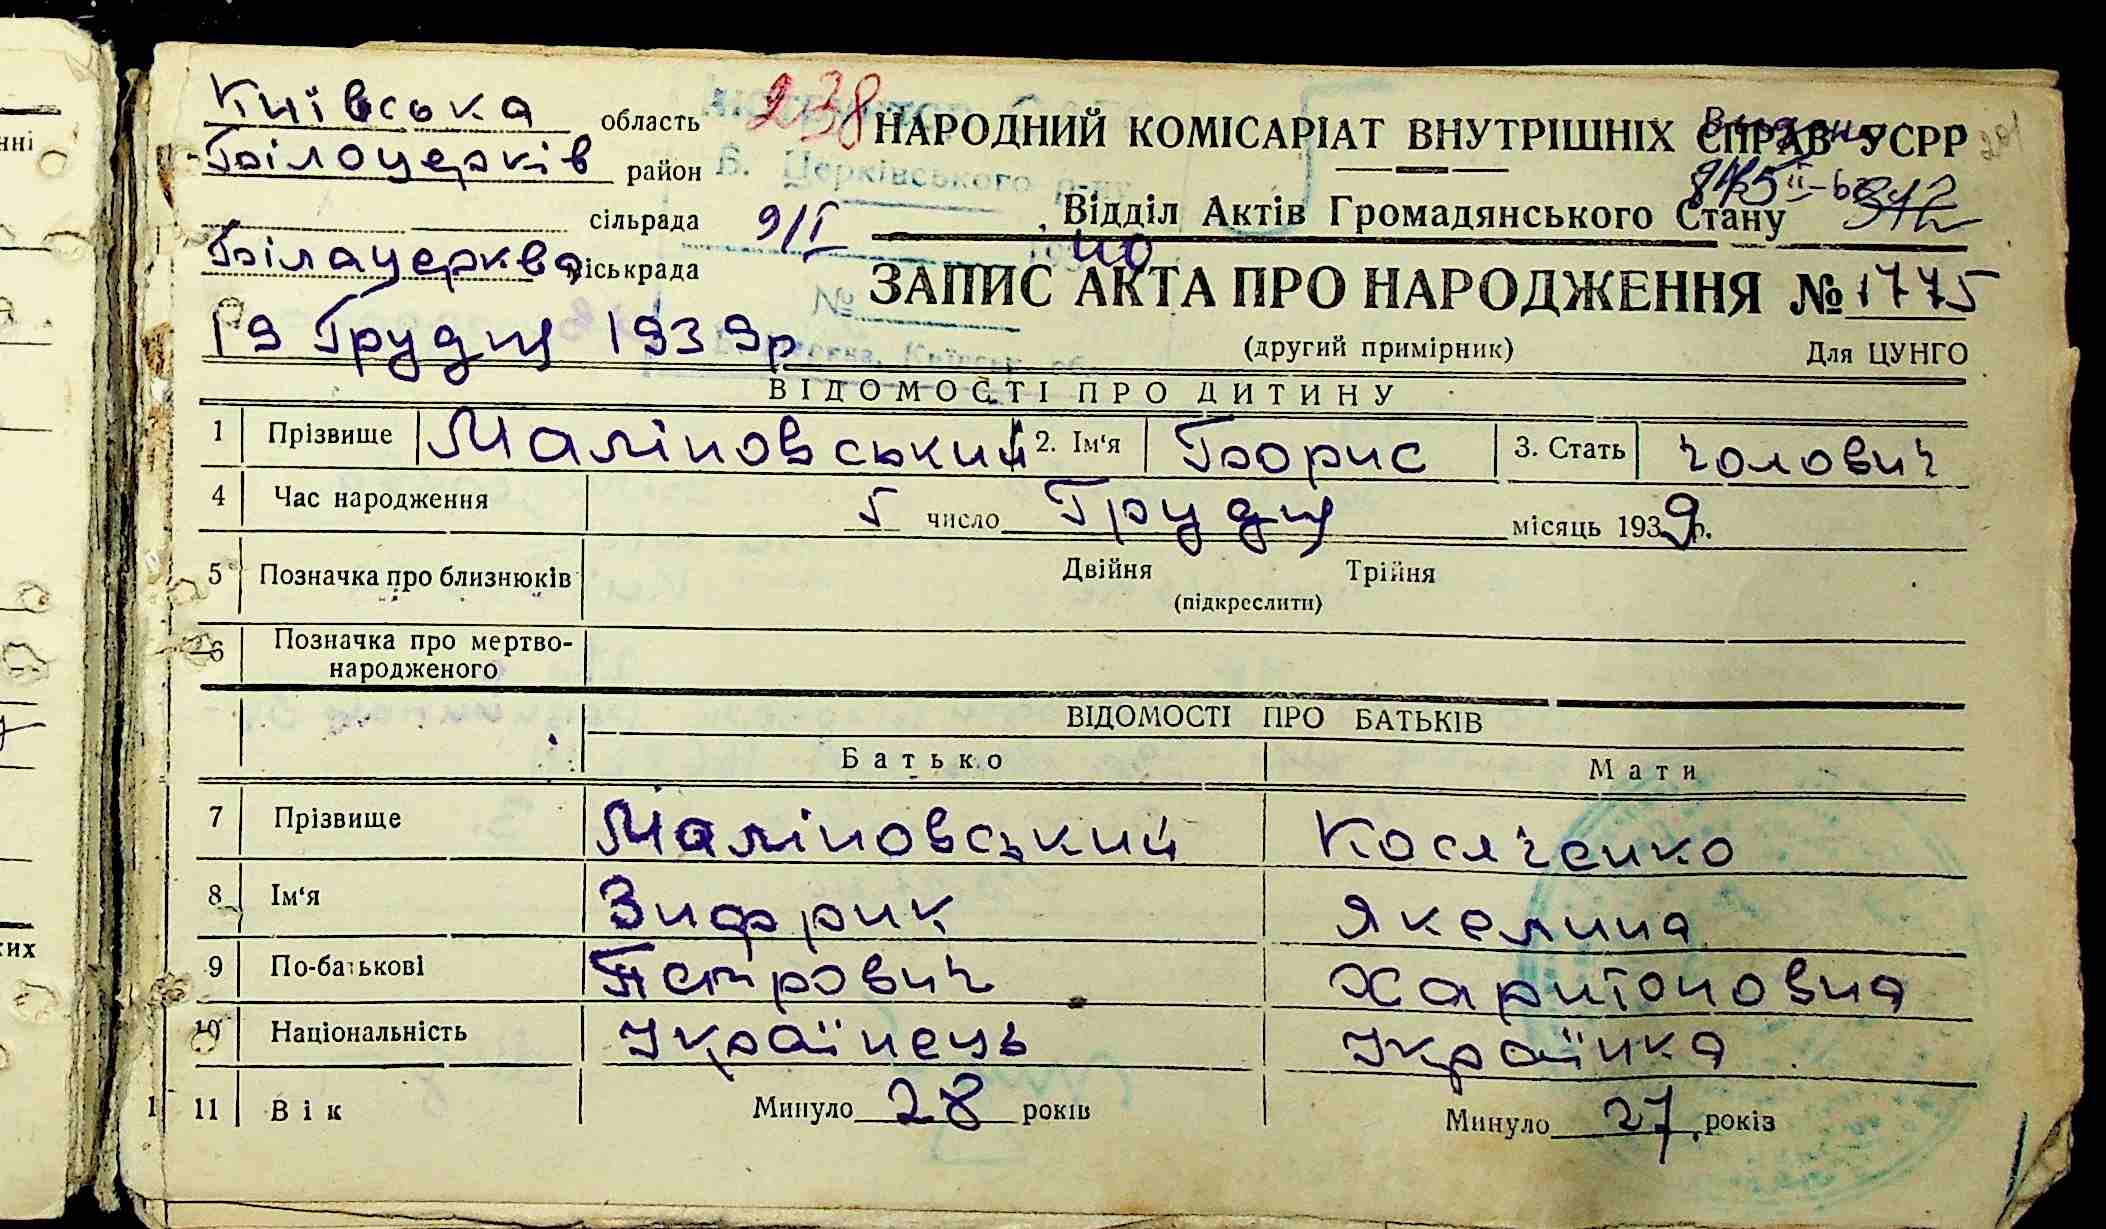 Київська область 238 НАРОДНИЙ КОМІСАРІАТ ВНУТРІШНІХ СПРАВ УСРР
Білоцерків район Б. Церківського р-ну
сільрада 9/I Відділ Актів Громадянського Стану
Білацерква міськрада 40
№ ЗАПИС АКТА ПРО НАРОДЖЕННЯ № 1775
19 Грудня 1939р (другий примірник) Для ЦУНГО
ВІДОМОСТІ ПРО ДИТИНУ
1 Прізвище Маліновський 2. Ім'я Борис 3. Стать чолович
4 Час народження 5 число Грудня місяць 1939р.
5 Позначка про близнюків Двійня Трійня
(підкреслити)
6 Позначка про мертво-
народженого
ВІДОМОСТІ ПРО БАТЬКІВ
Батько Мати
7 Прізвище Маліновський Косяченко
8 Ім'я Зифрик Якелина
9 По-батькові Петрович Харитоновна
10 Національність Українець Українка
11 Вік Минуло 28 років Минуло 27 років